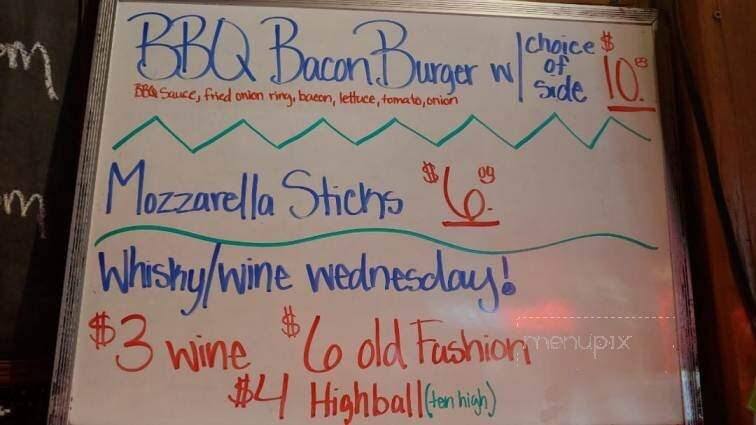 BBQ Bacon Burger w/ choice of side $10.00
BBQ sauce, fried onion ring, bacon, lettuce, tomato, onion
Mozzarella Sticks $6.00
Whisky/wine wednesday!
$3 wine $6 old Fashion
$4 Highball (ten high)
menupix